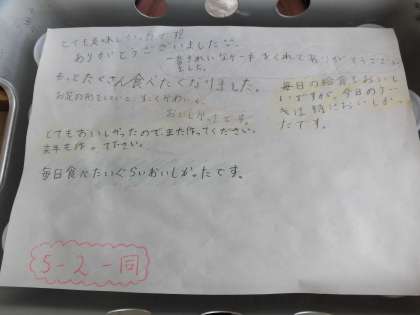 とても美味しかったです。
ありがとうございました
きれいなケーキをくれてありがとうござい
ました。
もっとたくさん食べたくなりました。
お花の形をしていて、すごくかわいい
おいしかったです。
毎日の給食もおいし
いですが、今日のケー
キは特においしかっ
たです。
とてもおいしかったので、また作ってください。
来年も作って下さい。
毎日食べたいぐらいおいしかったです。
5-2一同